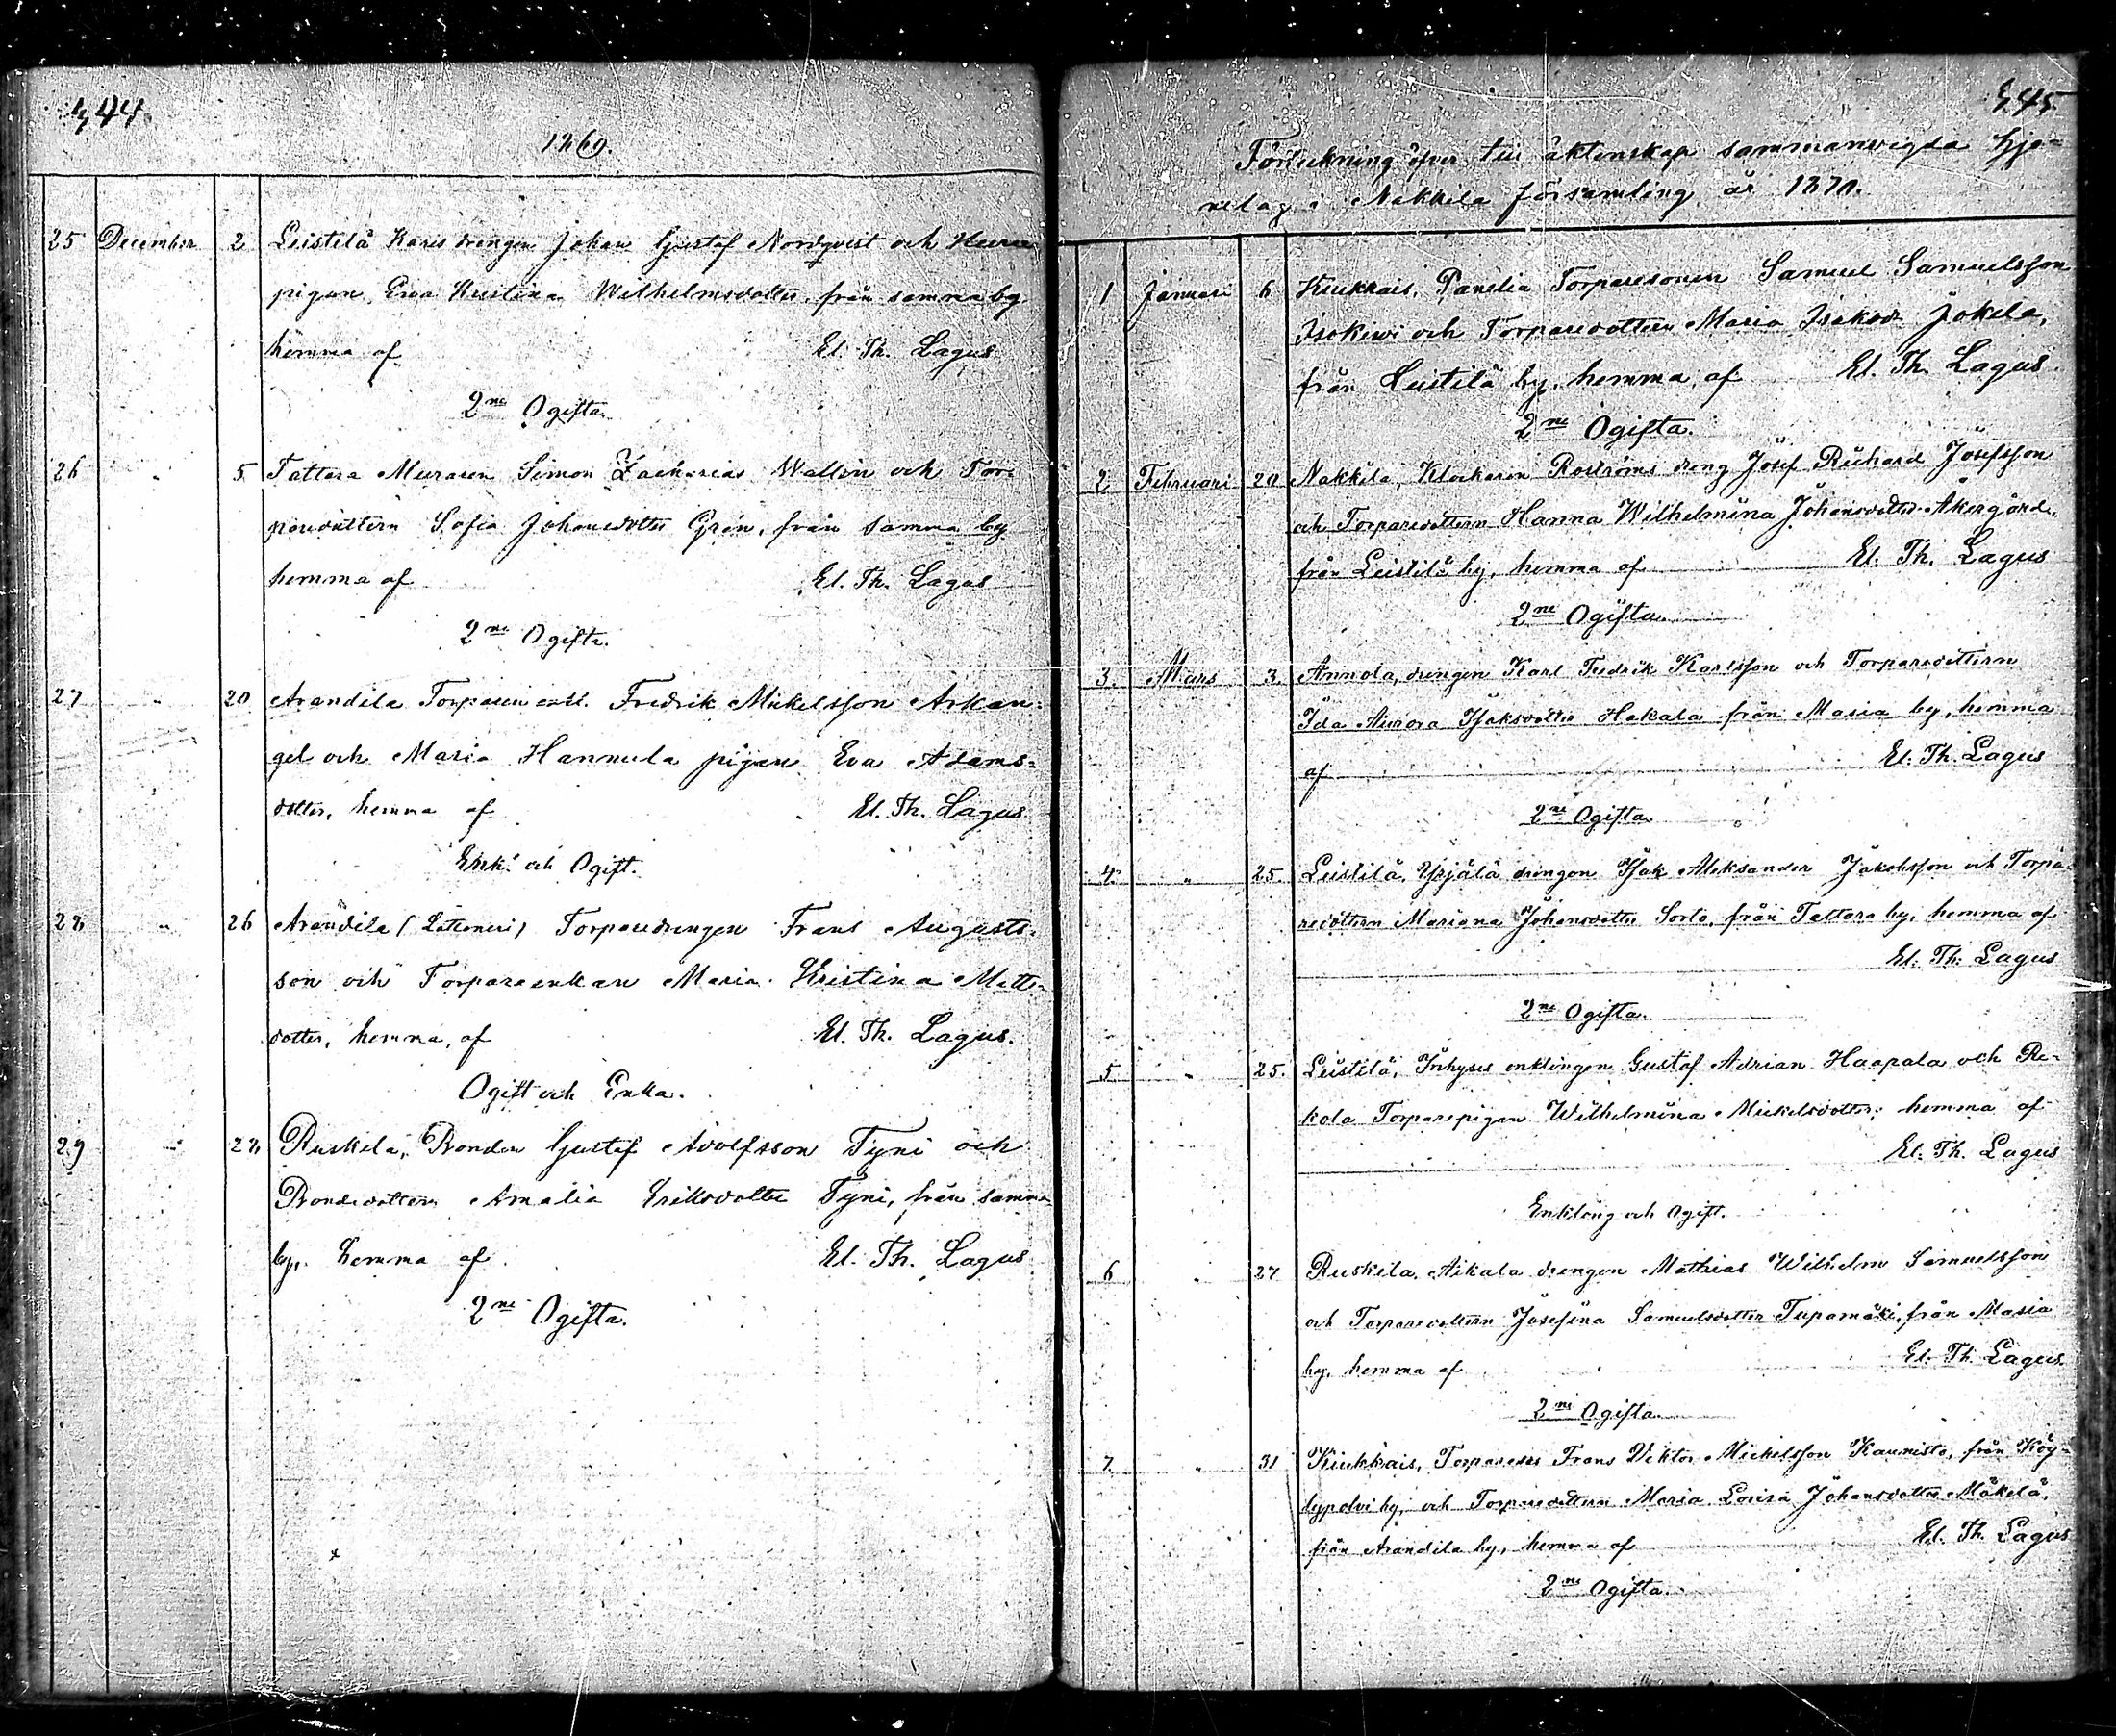 444.
1869.
25 December 2 Leistilä Karis drängen Johan Gustaf Nordqvist och Karis
pigan Eva Kristina Wilhelmsdotter, från samma by
hemma af El. Th. Lagus
2ne Ogifta.
26 " 5 Tattara Muraren Simon Zacharias Wallin och Tor-
paredottern Sofia Johansdotter Grön, från samma by
hemma af El. Th. Lagus
2ne Ogifta.
27 " 20 Arandila Torparen enkl. Fredrik Mikelsson Arkan-
gel och Maria Hannula pigan Eva Adams-
dotter, hemma af El. Th. Lagus
Enkl. och Ogift.
28 " 26 Arandila (Lattomeri) Torparedrengen Frans Augusts-
son och Torpareenkan Maria Kristina Matts-
dotter, hemma, af El. Th. Lagus.
Ogift och Enka.
29 " 28 Ruskila, Bonden Gustaf Adolfsson Tyni och
Bondedottern Amalia Eriksdotter Tyni, från samma
by, hemma af El. Th. Lagus
2ne Ogifta.
445
Förteckning öfver till äktenskap sammanvigda hjo-
nelag i Nakkila församling år 1870.
1 Januari 6 Kiukkais, Panelia Torparesonen Samuel Samuelsson
Isokiwi och Torparedottern Maria Isaksdr Jokela,
från Leistilä by, hemma af El. Th. Lagus.
2ne Ogifta.
2 Februari 20 Nakkila, Klockaren Roströms dreng Josef Richard Josefsson
och Torparedottern Hanna Wilhelmina Johansdotter Åkergård,
från Leistilä by, hemma af El. Th. Lagus
2ne Ogifta.
3. Mars 3. Annola, drengen Karl Fredrik Karlsson och Torparedottern
Ida Aurora Isaksdotter Hakala från Masia by, hemma
af El. Th. Lagus
2ne Ogifta
4. " 25. Leistilä, Yrjälä drengen Isak Aleksander Jakobsson och Torpa-
redottern Mariana Johansdotter Sorto, från Tattara by, hemma af
El. Th. Lagus
2ne Ogifta.
5 " 25. Leistilä, Inhyses enklingen Gustaf Adrian Haapala och Re-
kola Torparepigan Wilhelmina Mickelsdotter, hemma af
El. Th. Lagus
Enkling och Ogift.
6 " 27 Ruskila, Aikala drengen Mathias Wilhelm Samuelsson
och Torparedottern Josefina Samuelsdotter Tupamäki, från Masia
by, hemma af El. Th. Lagus
2ne Ogifta
7. " 31 Kiukkais, Torparesson Frans Viktor Mickelsson Kaunisto, från Köy-
lypolvi by, och Torparedottern Maria Lovisa Johansdotter Mäkelä,
från Arandila by, hemma af El. Th. Lagus
2ne Ogifta.